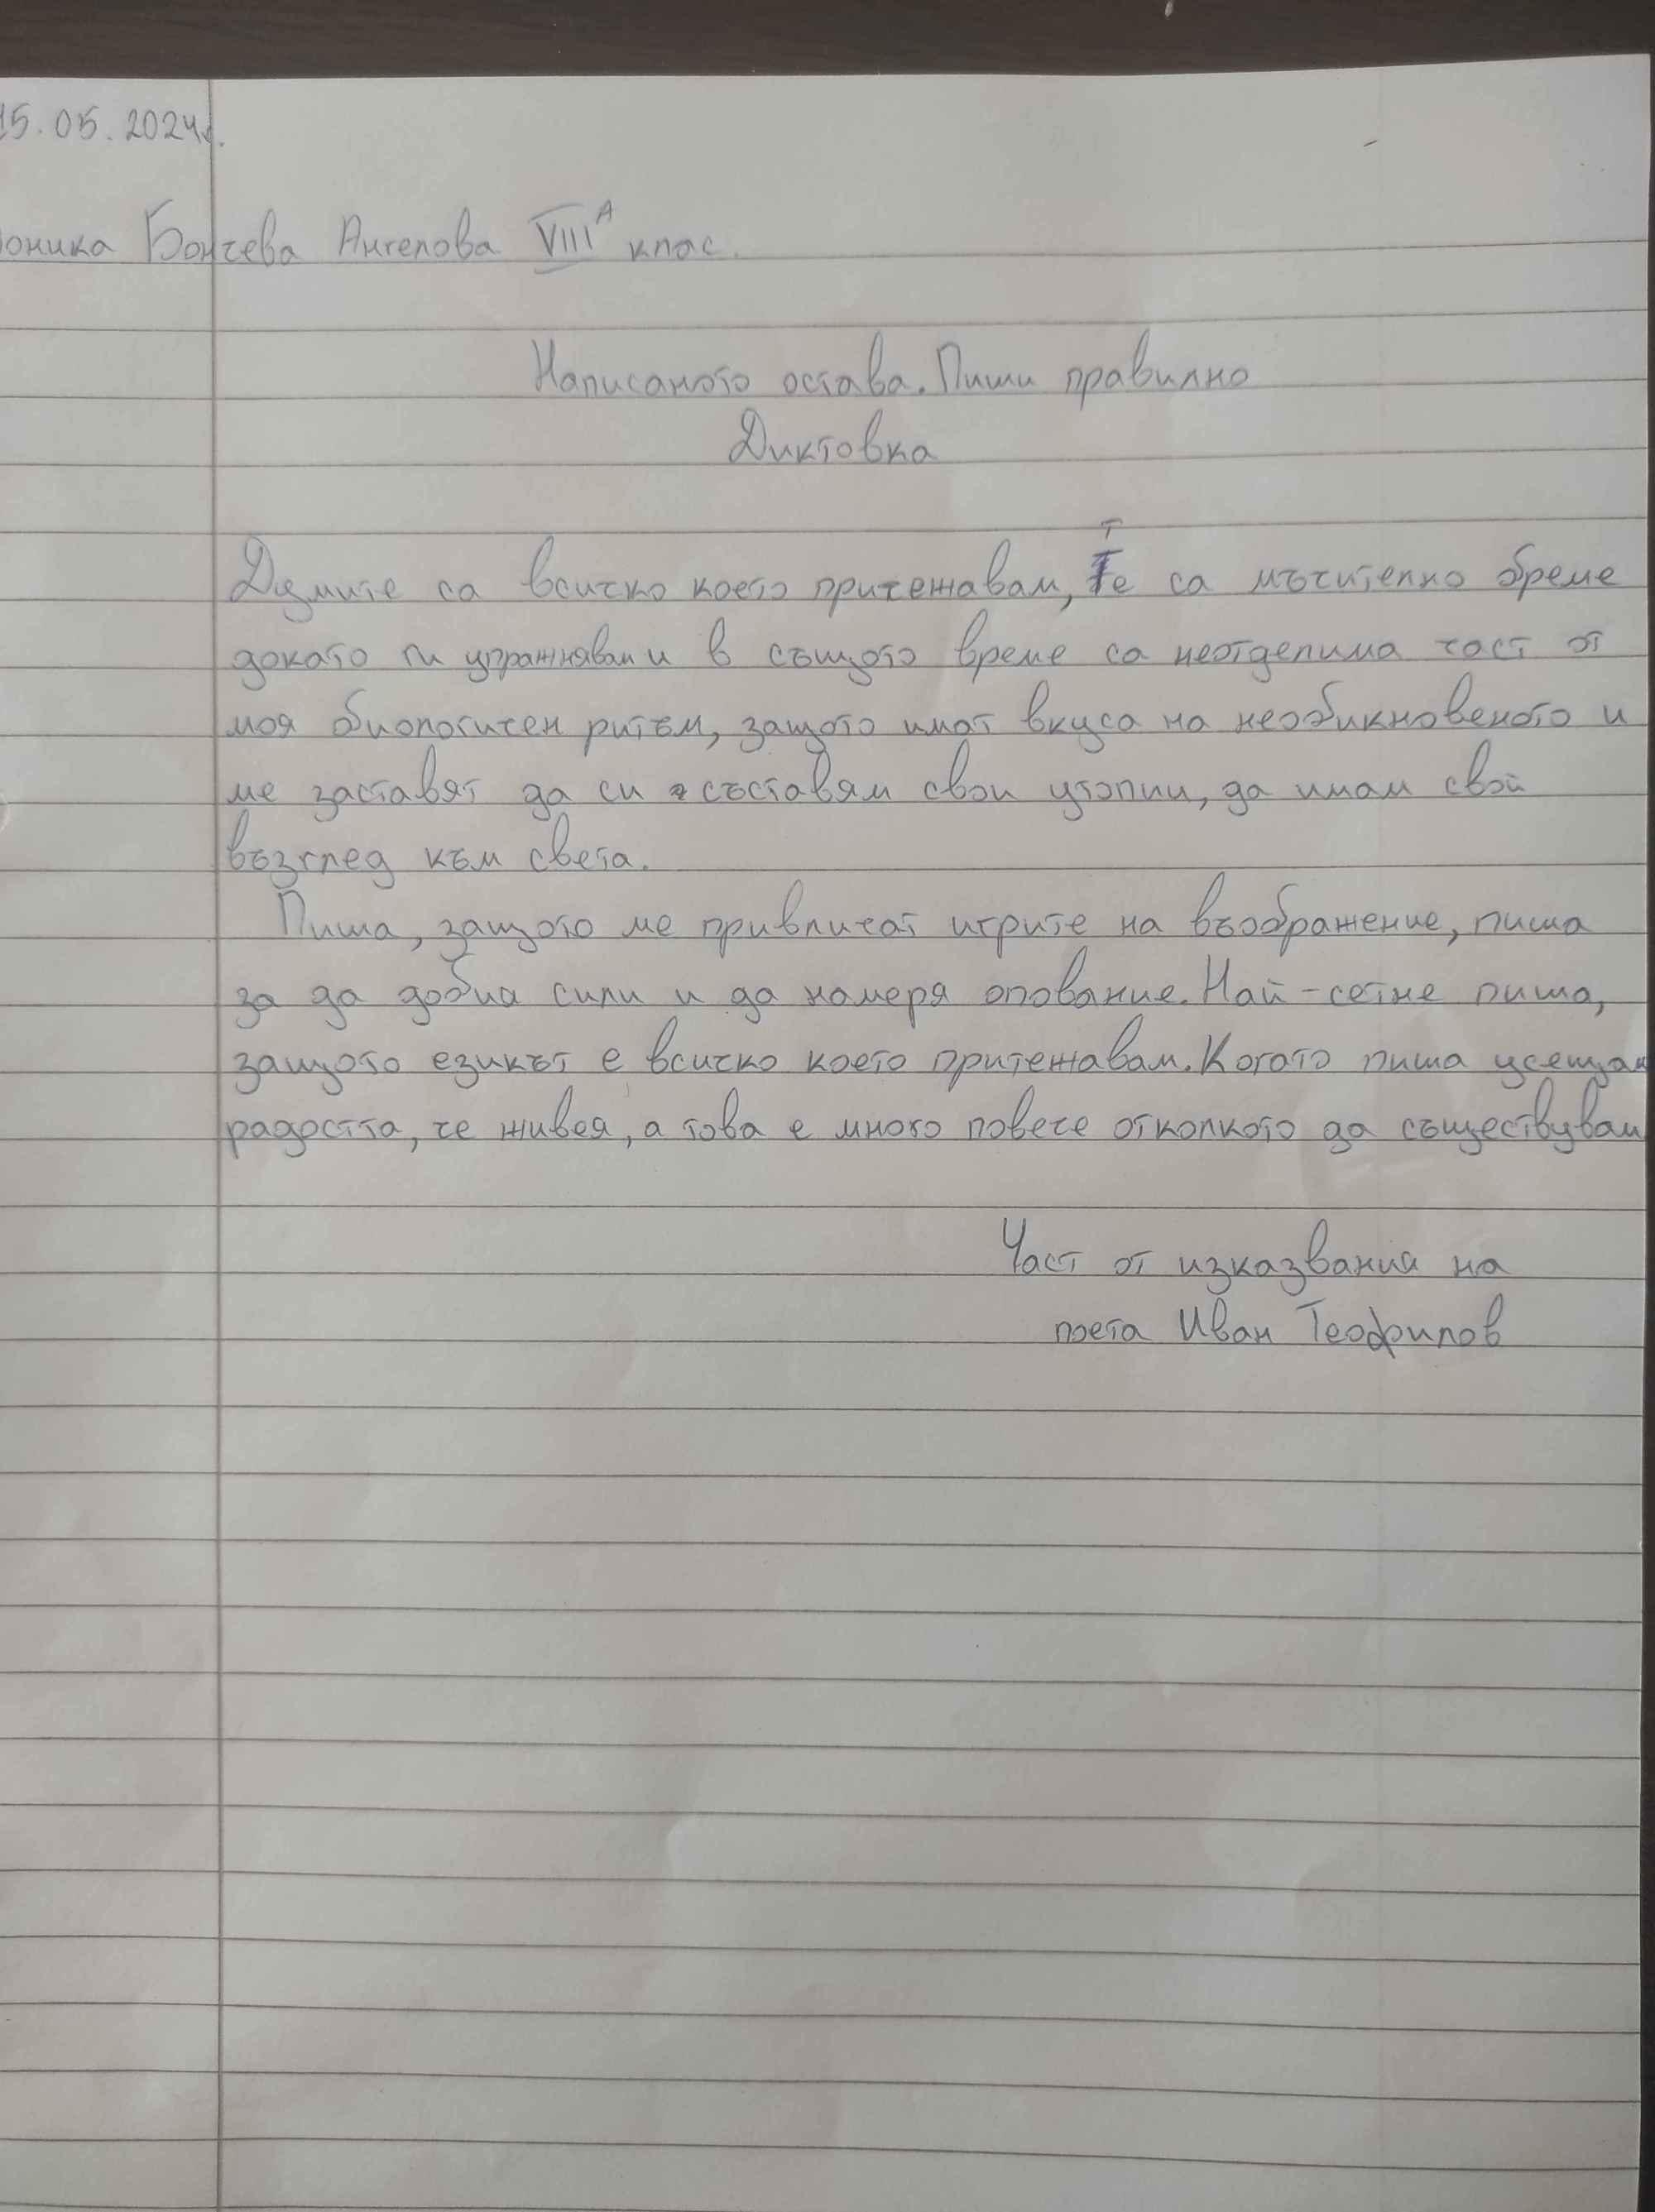 15.05.2024г.
оника Бончева Ангелова VIII А клас.
Написаното остава. Пиши правилно
Диктовка
Думите са всичко което притежавам, Те са мъчително бреме
докато ги упражнявам и в същото време са неотделима част от
моя биологичен ритъм, защото имат вкуса на необикновеното и
ме заставят да си съставям свои утопии, да имам свой
възглед към света.
Пиша, защото ме привличат игрите на въображение, пиша
за да добия сили и да намеря опование. Най-сетне пиша,
защото езикът е всичко което притежавам. Когато пиша усещам
радостта, че живея, а това е много повече отколкото да съществувам
Част от изказвания на
поета Иван Теофилов